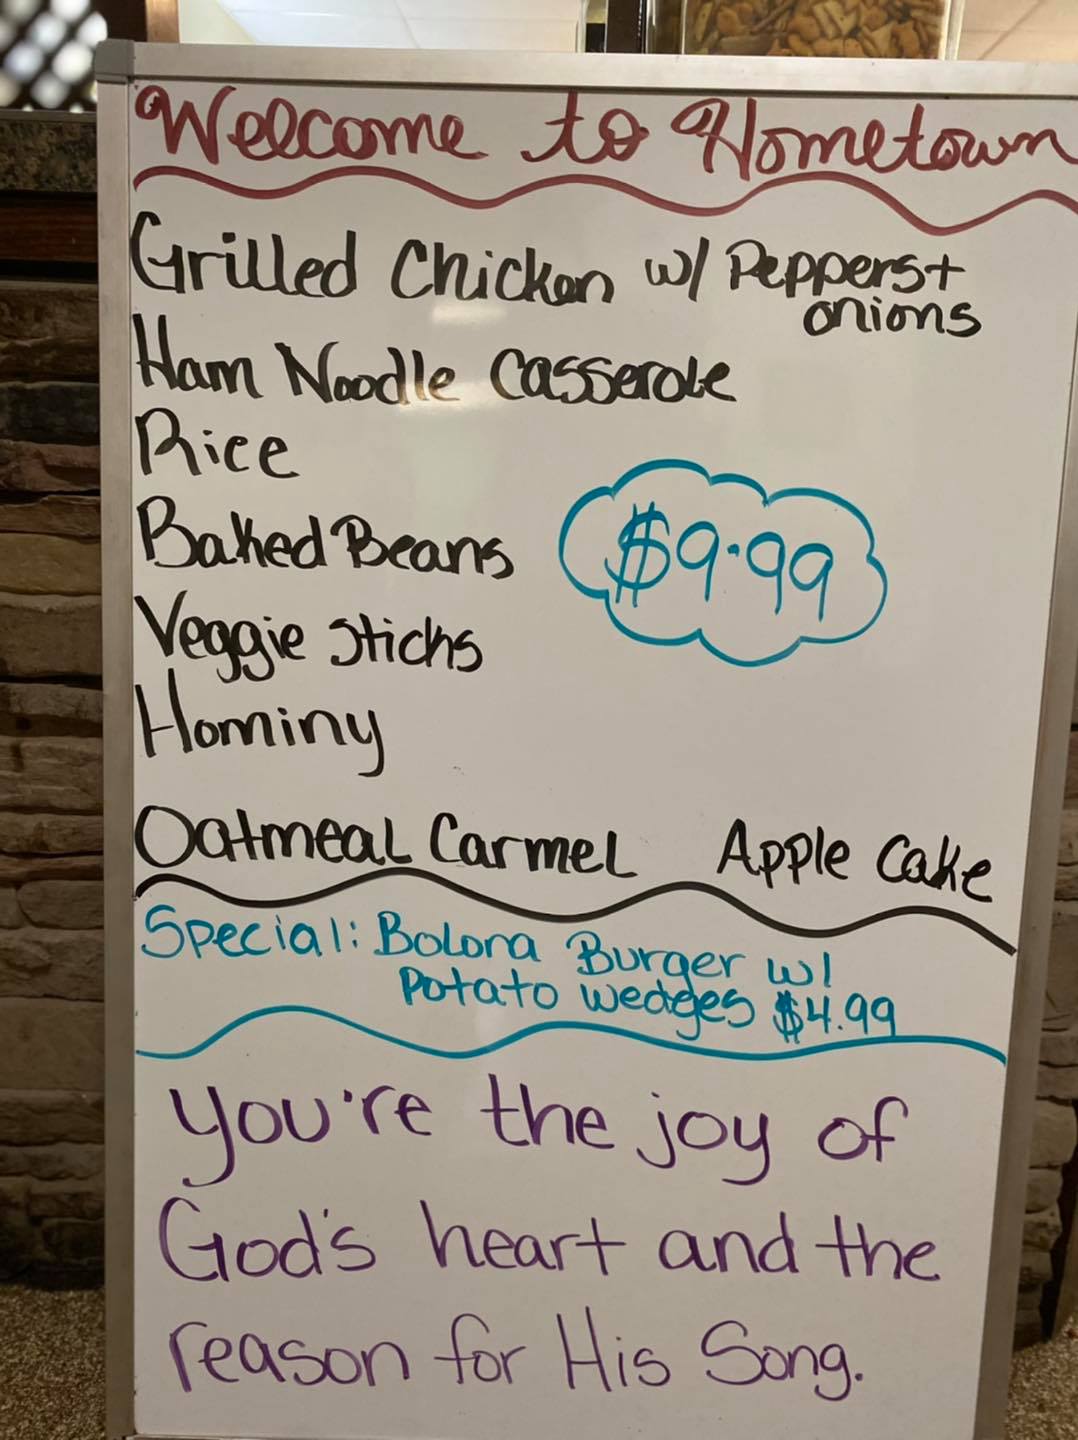 Welcome to Hometown
Grilled Chicken w/ Peppers +
onions
Ham Noodle Casserole
Rice
Baked Beans
$9.99
Veggie Sticks
Hominy
Oatmeal Carmel Apple Cake
Special: Bolona Burger w/
Potato wedges $4.99
You're the joy of
God's heart and the
reason for His Song.